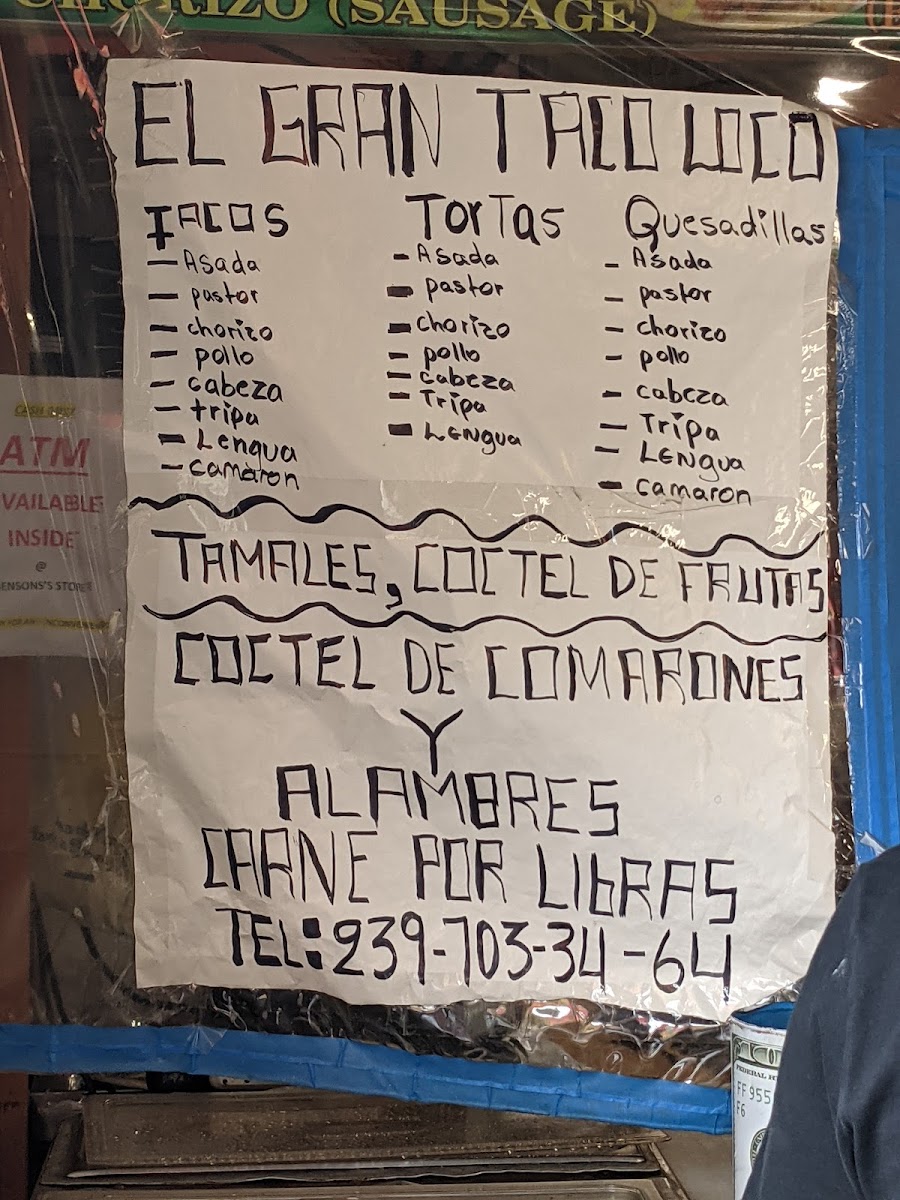 CHORIZO (SAUSAGE)
EL GRAN TACO LOCO
TACOS
- Asada
- pastor
- chorizo
- pollo
- cabeza
- tripa
- Lengua
- camaron
TorTas
- Asada
- pastor
- chorizo
- pollo
- cabeza
- Tripa
- LENgua
Quesadillas
- Asada
- pastor
- chorizo
- pollo
- cabeza
- Tripa
- LENgua
- camaron
TAMALES, COCTEL DE FRUTAS
COCTEL DE COMARONES
Y
ALAMBRES
CARNE POR LIbRAS
TEL: 239-703-34-64
CASH ONLY
ATM
AVAILABLE
INSIDE
@
ENSONS'S STORE
FEDERAL
FF 955
F6